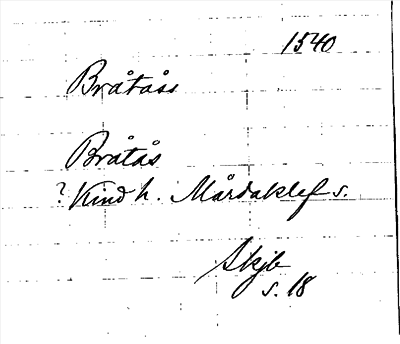 1540
Bråtåss
Bråtås
? Kind h. Mårdaklef s.
Skjb
s. 18